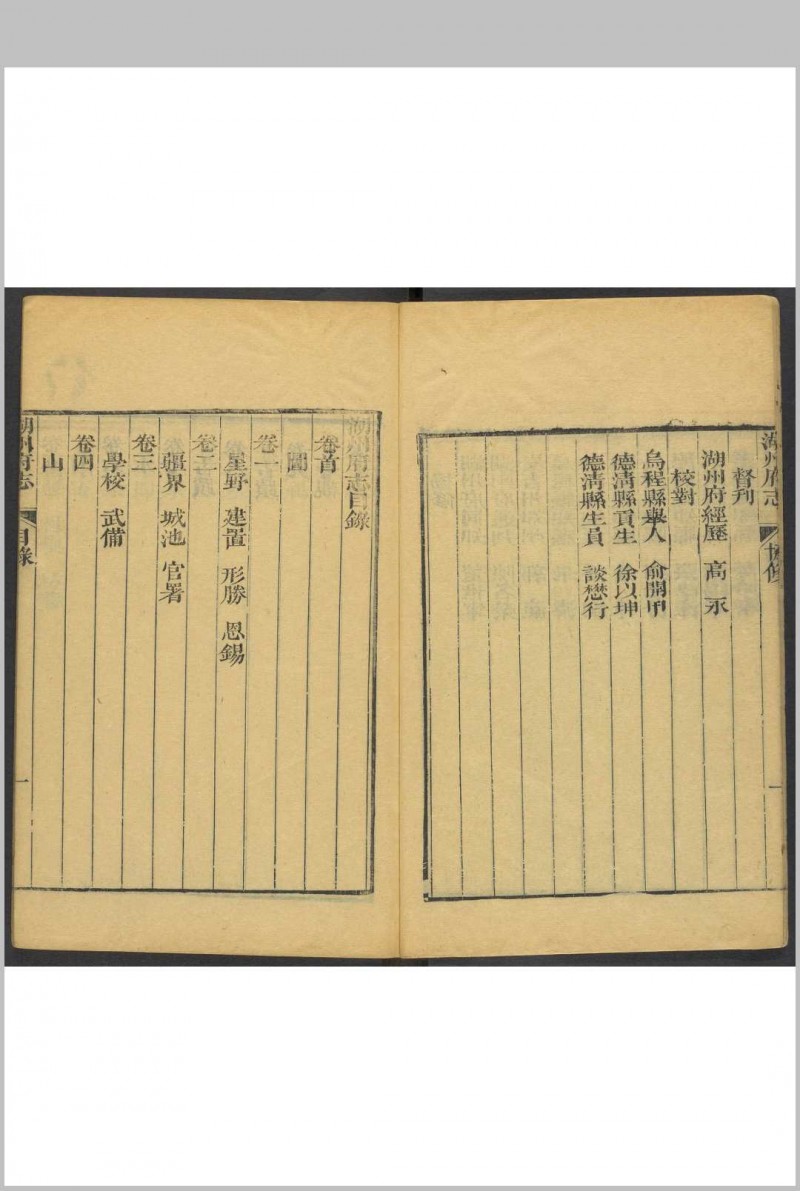 湖州府志
協修
一
督刋
湖州府經歷　高　永
校對
烏程縣舉人　俞開甲
德清縣貢生　徐以坤
德清縣生員　談懋行
湖州府志目錄
卷首
圖
卷一
星野　建置　形勝　恩錫
卷二
疆界　城池　官署
卷三
學校　武備
卷四
山
湖州府志
目錄
一